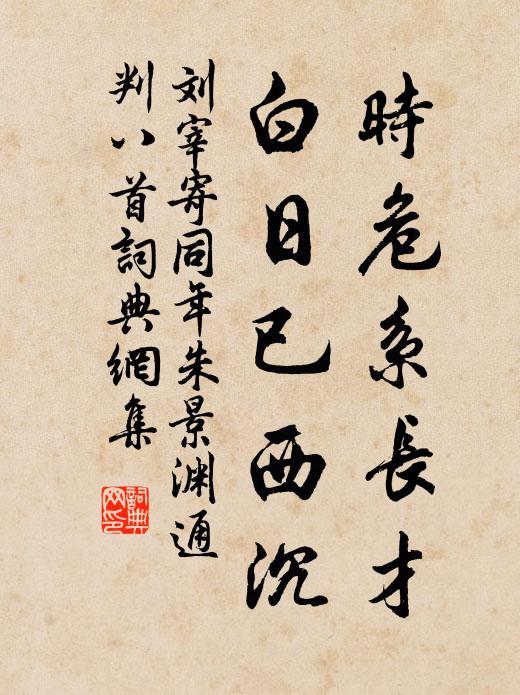 時危系長才
白日已西沉
刘宰寄同年朱景渊通
判八首詞典網集
詞典
网印